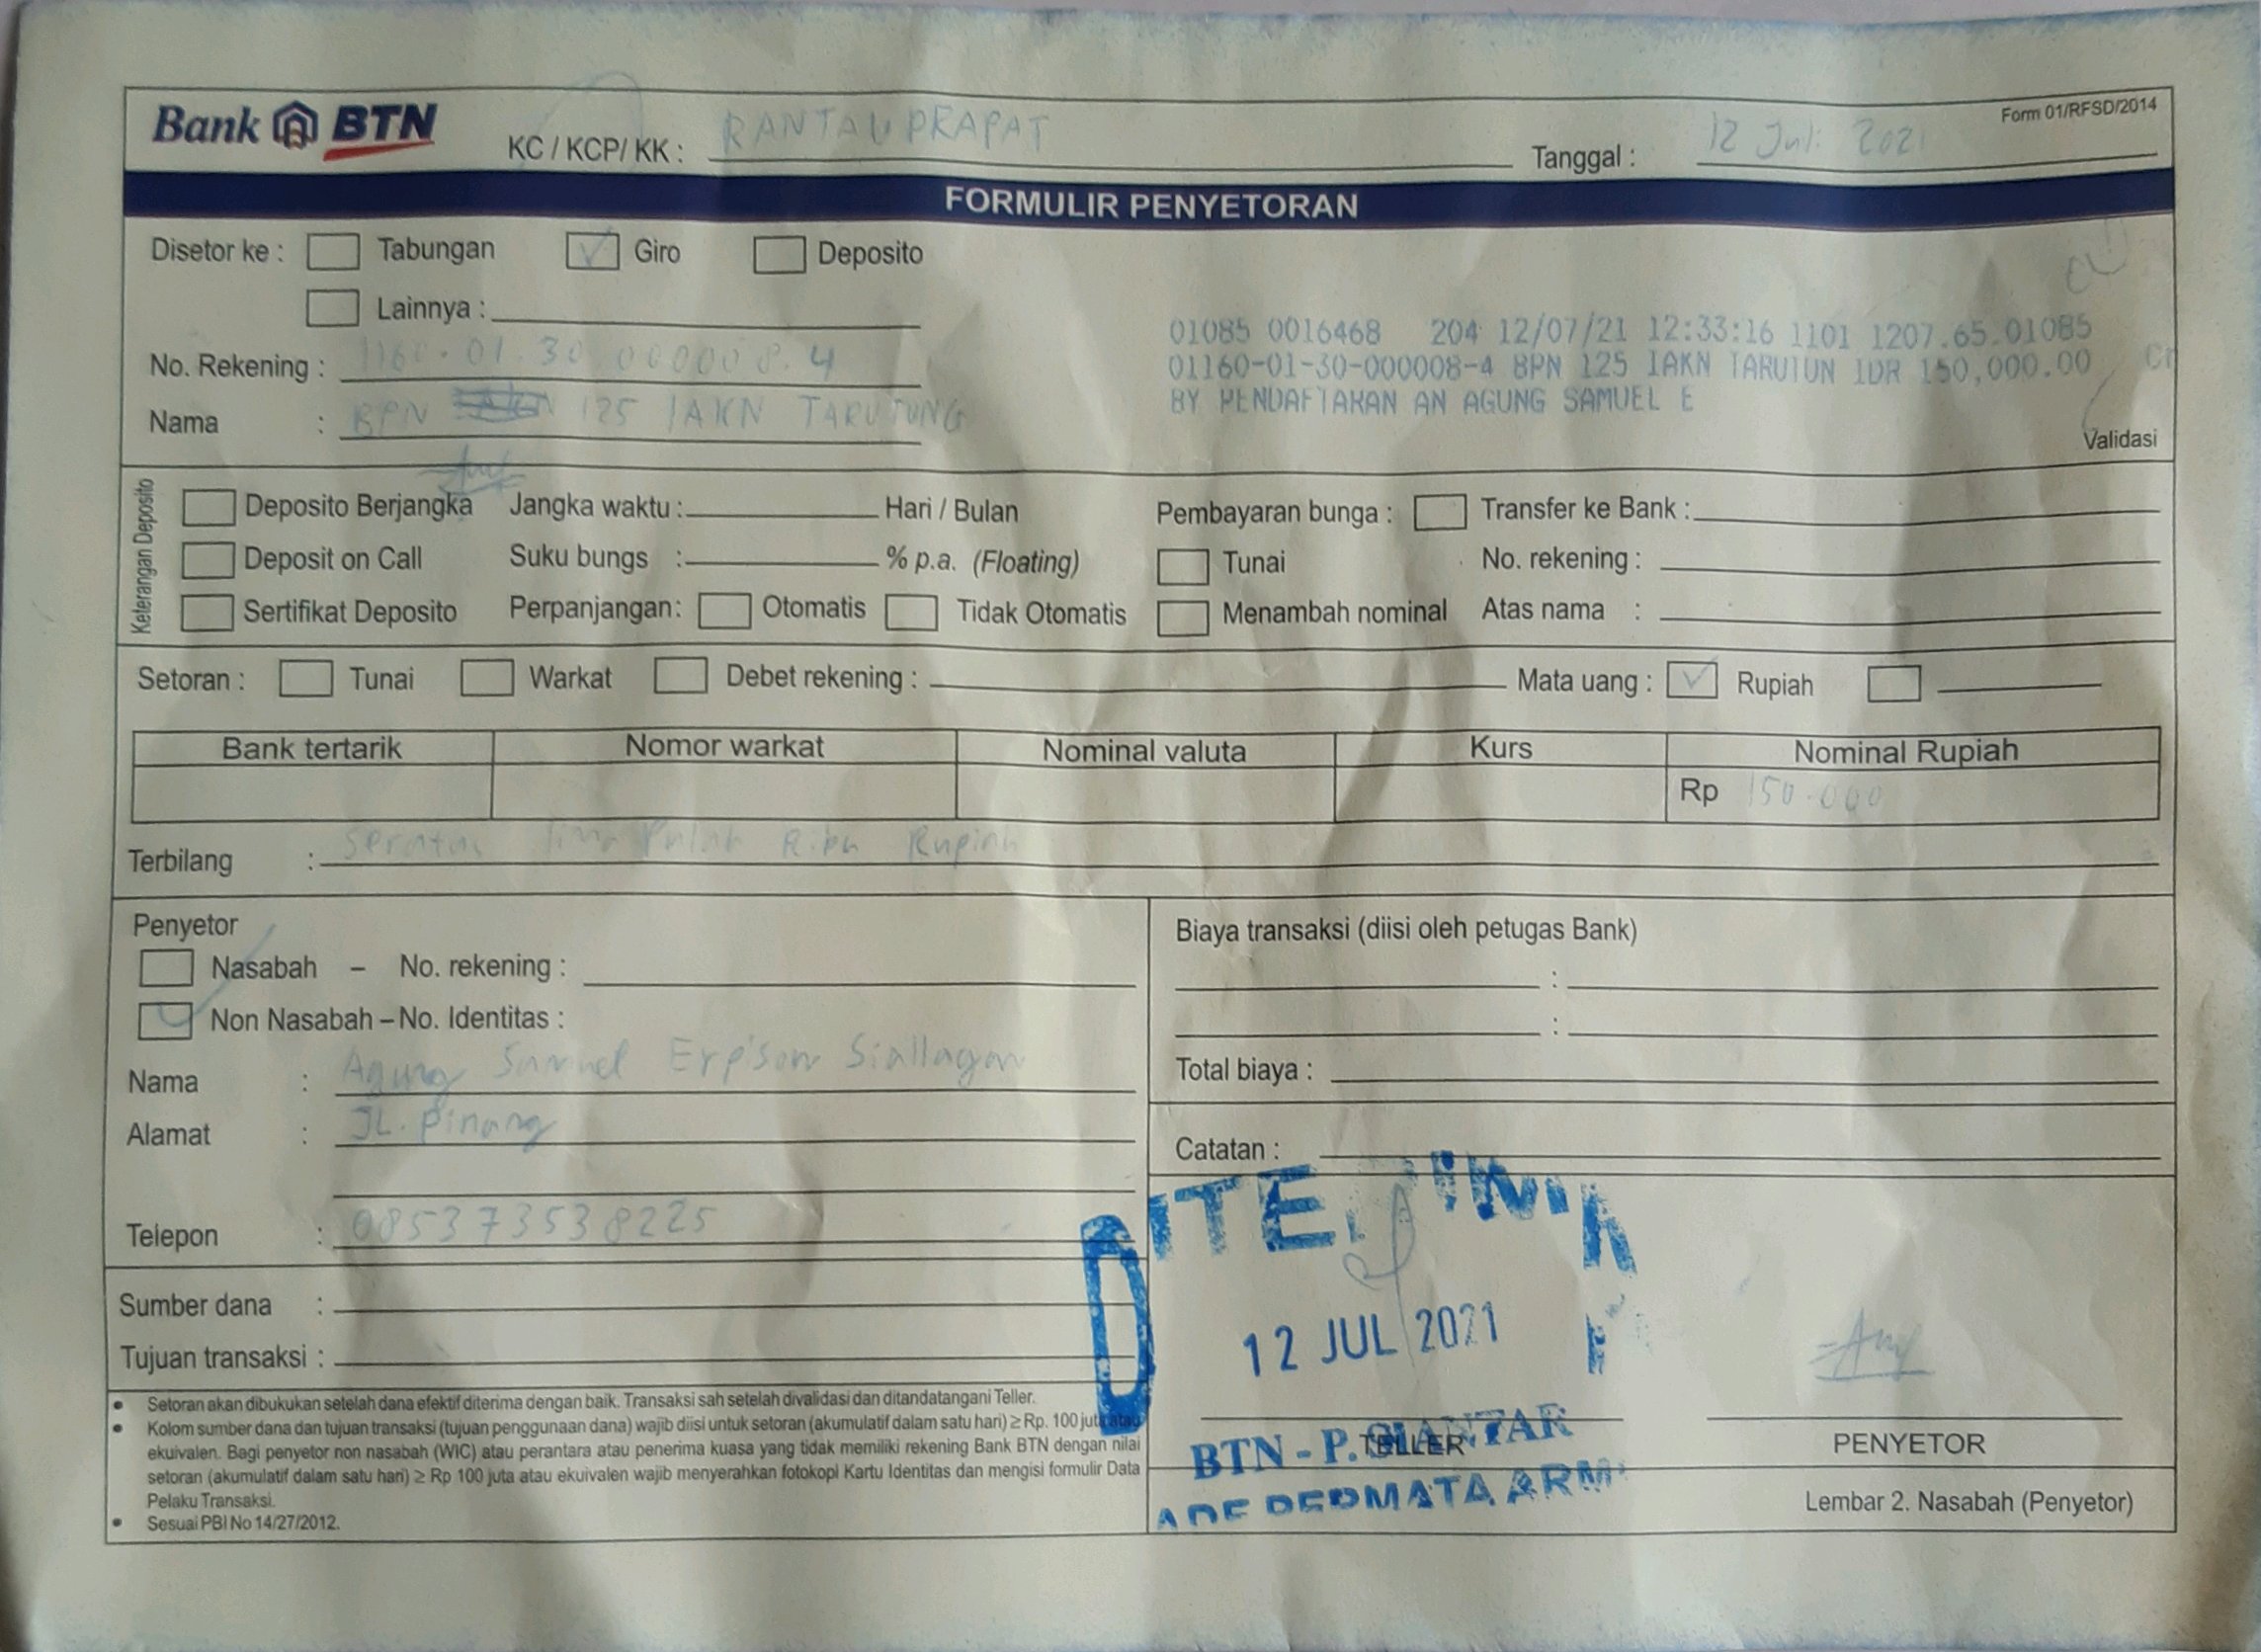 Bank BTN KC / KCP/ KK : RANTAU PRAPAT Tanggal : 12 Juli 2021
Form 01/RFSD/2014
FORMULIR PENYETORAN
Disetor ke : Tabungan Giro Deposito
Lainnya :
No. Rekening : 1160.01.30.000008.4
Nama : BPN 125 IAKN TARUTUNG
01085 0016468 204 12/07/21 12:33:16 1101 1207.65.01085
01160-01-30-000008-4 BPN 125 IAKN TARUTUN IDR 150,000.00 Cr
BY PENDAFTARAN AN AGUNG SAMUEL E
Validasi
Keterangan Deposito
Deposito Berjangka Jangka waktu : Hari / Bulan Pembayaran bunga : Transfer ke Bank :
Deposit on Call Suku bungs : % p.a. (Floating) Tunai No. rekening :
Sertifikat Deposito Perpanjangan: Otomatis Tidak Otomatis Menambah nominal Atas nama :
Setoran : Tunai Warkat Debet rekening : Mata uang : Rupiah
Bank tertarik Nomor warkat Nominal valuta Kurs Nominal Rupiah
Rp 150.000
Terbilang : Seratus lima Puluh Ribu Rupiah
Penyetor
Nasabah – No. rekening :
Non Nasabah – No. Identitas :
Nama : Agung Samuel Erpison Siallagan
Alamat : JL. Pinang
Telepon : 085373538225
Sumber dana :
Tujuan transaksi :
Biaya transaksi (diisi oleh petugas Bank)
:
:
Total biaya :
Catatan :
DITERIMA
12 JUL 2021
BTN - P. SIANTAR
TELLER
PENYETOR
Lembar 2. Nasabah (Penyetor)
• Setoran akan dibukukan setelah dana efektif diterima dengan baik. Transaksi sah setelah divalidasi dan ditandatangani Teller.
• Kolom sumber dana dan tujuan transaksi (tujuan penggunaan dana) wajib diisi untuk setoran (akumulatif dalam satu hari) ≥ Rp. 100 juta atau
ekuivalen. Bagi penyetor non nasabah (WIC) atau perantara atau penerima kuasa yang tidak memiliki rekening Bank BTN dengan nilai
setoran (akumulatif dalam satu hari) ≥ Rp 100 juta atau ekuivalen wajib menyerahkan fotokopi Kartu Identitas dan mengisi formulir Data
Pelaku Transaksi.
• Sesuai PBI No 14/27/2012.